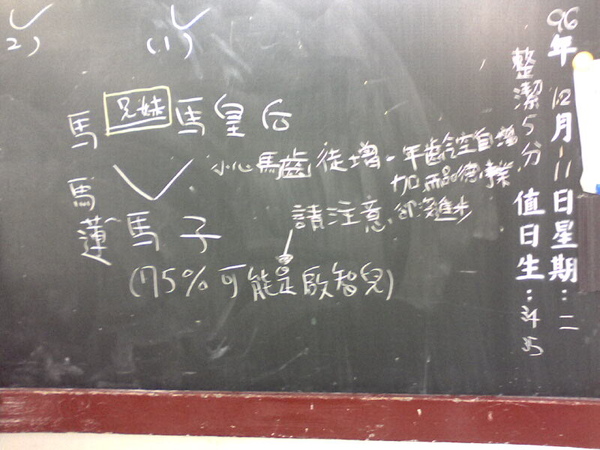 96年12月11日星期:二
整潔5分 值日生:34 35
(1)
2)
馬 兄妹 馬皇后
馬
蓮
馬子
小心馬齒徒增。年齒空自增
加而品德學業
卻難進步
請注意
(75%可能是啟智兒)